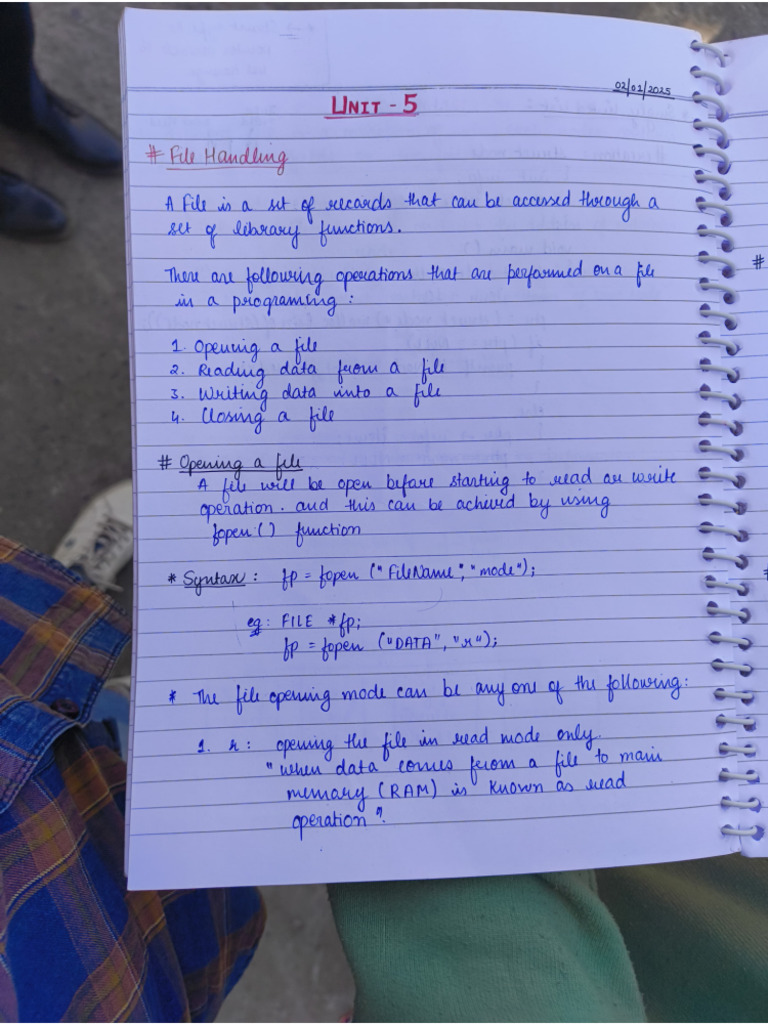 02/02/2025
UNIT - 5
# File Handling
A File is a set of records that can be accessed through a
set of library functions.
There are following operations that are performed on a file
in a programing :
1. Opening a file
2. Reading data from a file
3. Writing data into a file
4. Closing a file
# Opening a file
A file will be open before starting to read or write
operation. and this can be achieved by using
fopen () function
* Syntax : fp = fopen ("FileName", "mode");
eg: FILE *fp;
fp = fopen ("DATA", "r");
* The file opening mode can be any one of the following:
1. r : opening the file in read mode only.
"when data comes from a file to main
memory (RAM) is known as read
operation".
#